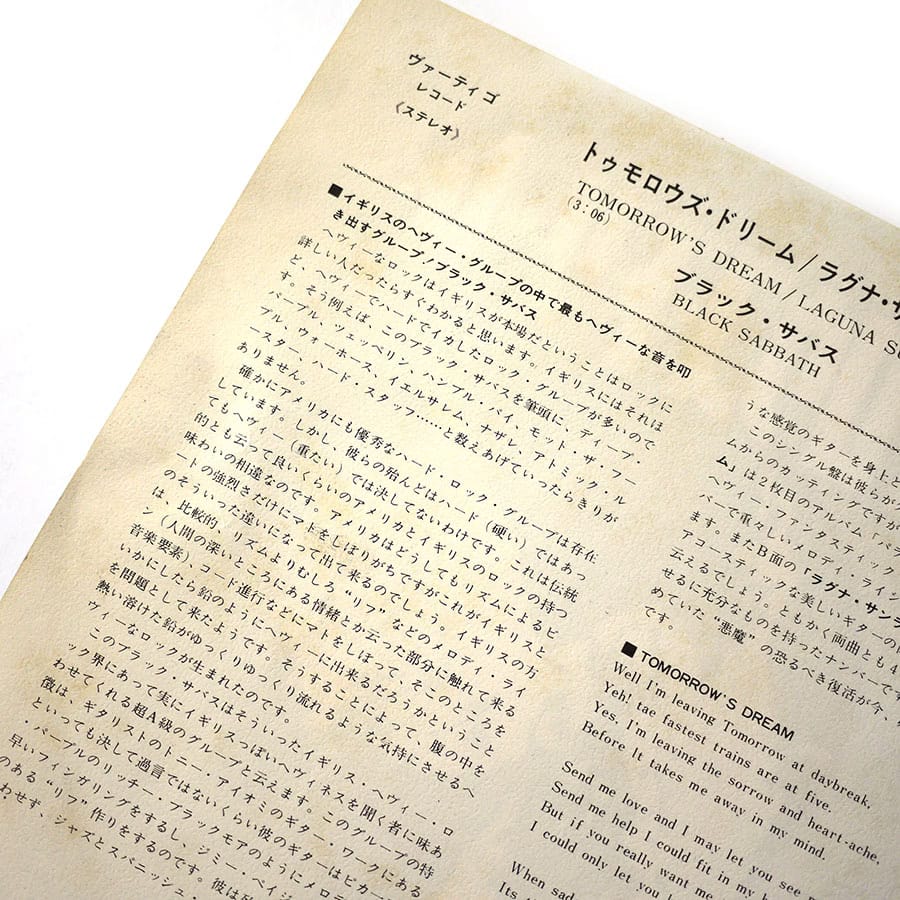 ヴァーティゴ
レコード
《ステレオ》
トゥモロウズ・ドリーム/ラグナ・サ
TOMORROW'S DREAM/LAGUNA SU
(3:06)
ブラック・サバス
BLACK SABBATH
■イギリスのヘヴィー・グループの中で最もヘヴィーな音を叩
き出すグループ!ブラック・サバス
ヘヴィーなロックはイギリスが本場だということはロックに
詳しい人だったらすぐわかると思います。イギリスにはそれほ
ど、ヘヴィーでハードでイカしたロック・グループが多いので
す。そう例えば、このブラック・サバスを筆頭に、ディープ・
パープル、ツェッペリン、ハンブル・パイ、モット・ザ・フー
プル、ウォーホース、イエルサレム、ナザレ、アトミック・ル
ースター、ハード・スタッフ……と数えあげていったらきりが
ありません。
確かにアメリカにも優秀なハード・ロック・グループは存在
しています。しかし、彼らの殆んどはハード(硬い)ではあっ
てもヘヴィー(重たい)では決してないわけです。これは伝統
的とも云って良いくらいのアメリカとイギリスのロックの持つ
味わいの相違なのです。アメリカはどうしてもリズムによるビ
ートの強烈さだけにマトをしぼりがちですがこれがイギリスと
のそういった違いになって出て来るのでしょう。イギリスの方
は、比較的、リズムよりむしろ“リフ”などのメロディ・ライ
ン(人間の深いところにある情緒とか云った部分に触れて来る
音楽要素)、コード進行などにマトをしぼって、そこのところを
いかにしたら鉛のようにヘヴィーに出来るだろうかということ
を問題として来たようです。そうすることによって、腹の中を
熱い溶けた鉛がゆっくりゆっくり流れるような気持にさせるヘ
ヴィーなロックが生まれたのです。
このブラック・サバスはそういったイギリス・ヘヴィー・ロ
ック界にあって実にイギリスっぽいヘヴィネスを聞く者に味あ
わせてくれる超A級のグループと云えます。このグループの特
徴は、ギタリストのトニー・アイオミのギター・ワークにある
といっても決して過言ではないくらい彼のギターはピカ一
・パープルのリッチー・ブラックモアのようにメロ
早いフィンガリングをするし、ジミー・ペイジ
のある“リフ”作りをするのです。彼は
わせず、ジャズとスパニッシュ・
うな感覚のギターを身上と
このシングル盤は彼らが
ムからのカッティングですが
ム」は2枚目のアルバム「パラ
ヘヴィー・ファンタスティック
バーで重々しいメロディ・ライン
ます。またB面の「ラグナ・サンラ
アコースティックな美しいギターの
云えるでしょう。ともかく両曲とも4
せるに充分なものを持ったナンバーで
めていた“悪魔”の恐るべき復活が今、
です。
■TOMORROW'S DREAM
Well I'm leaving Tomorrow at daybreak,
Yeh! tae fastest trains are at five,
Yes, I'm leaving the sorrow and heart-ache,
Before It takes me away in my mind.
Send me love and I may let you see
Send me help I could fit in my h
But if you really want me
I could only let you
When sad
Its